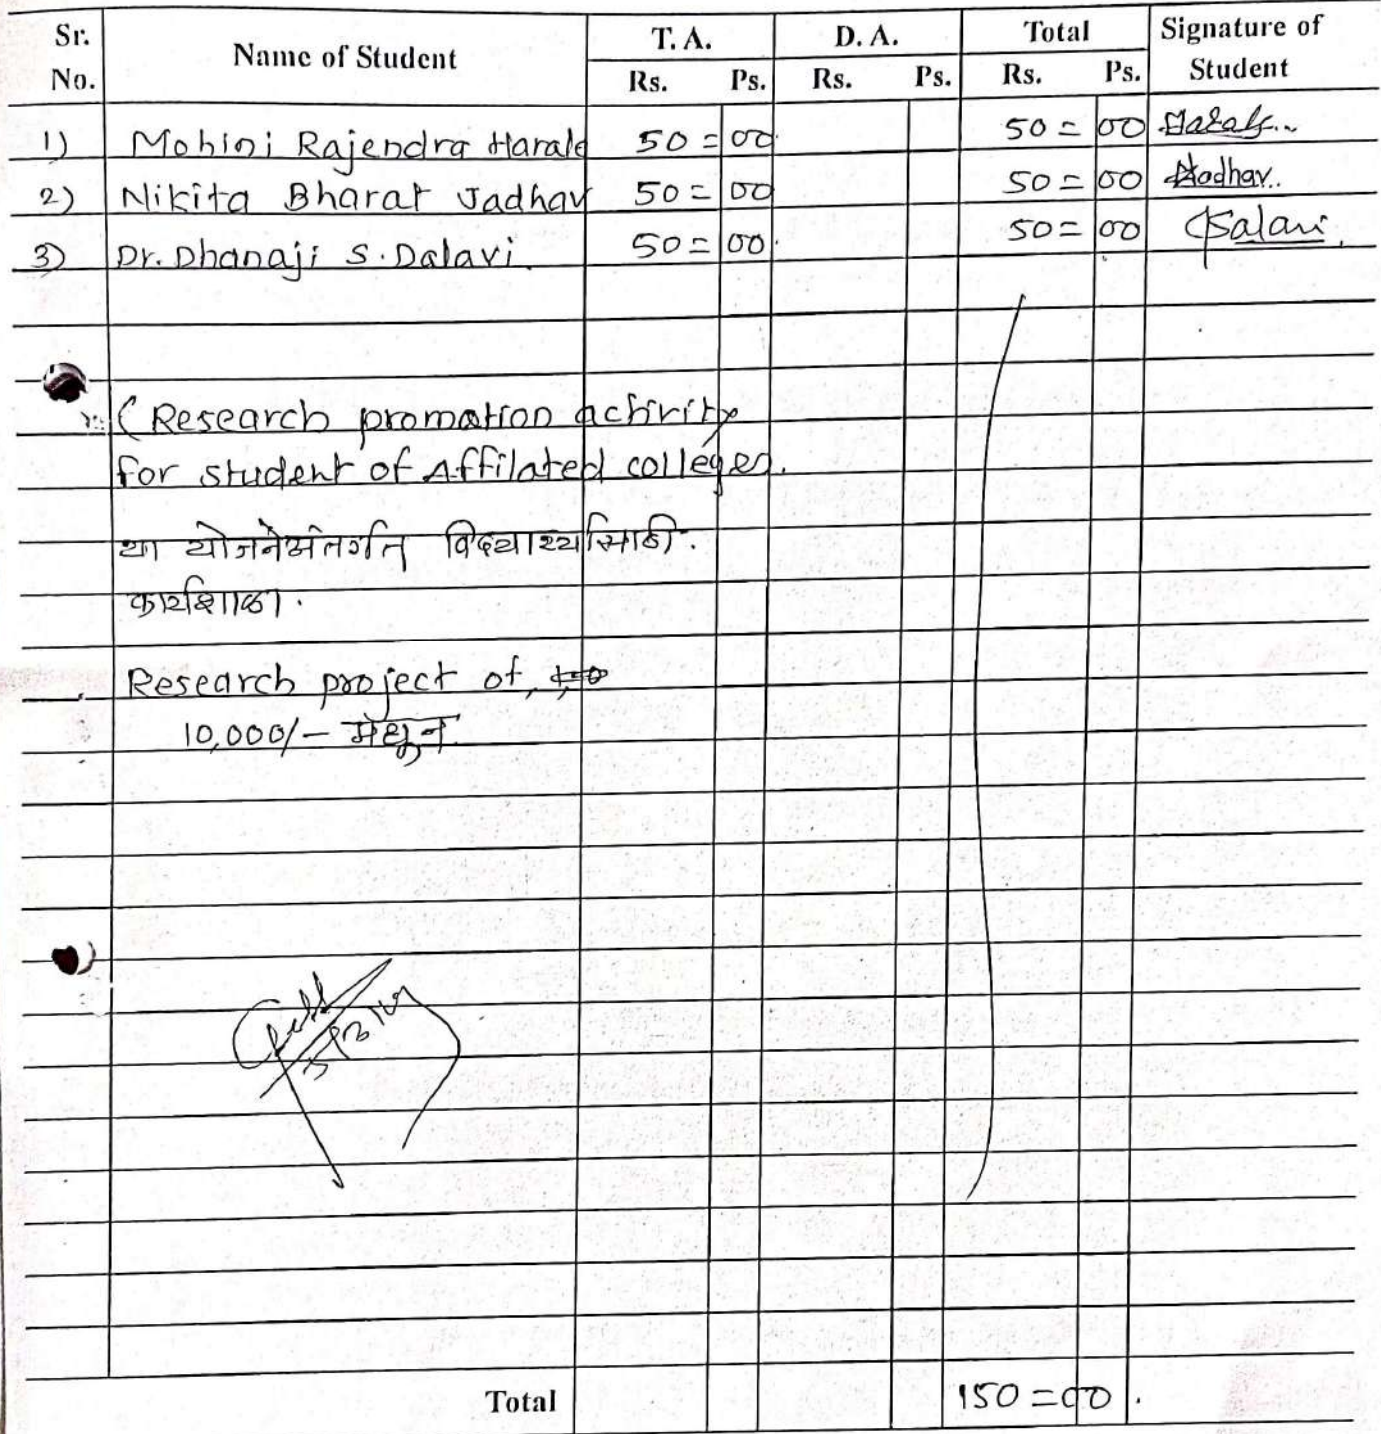 Sr. No. Name of Student T. A. D. A. Total Signature of Student
Rs. Ps. Rs. Ps. Rs. Ps.
1) Mohini Rajendra Harale 50 = 00 50 = 00 Harale..
2) Nikita Bharat Jadhav 50 = 00 50 = 00 Jadhav..
3) Dr. Dhanaji S. Dalavi. 50 = 00. 50 = 00 Dalavi.
(Research promation activity
for student of Affilated colleges.
या योजनेअंतर्गत विद्यार्थ्यांसाठी.
कार्यशाळा.
Research project of,
10,000/- मधून
Total 150 = 00.